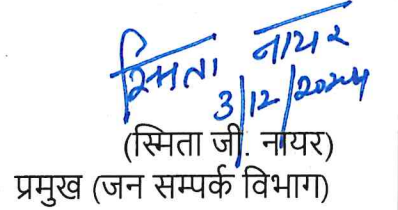 स्मिता नायर
3/12/2024
(स्मिता जी. नायर)
प्रमुख (जन सम्पर्क विभाग)